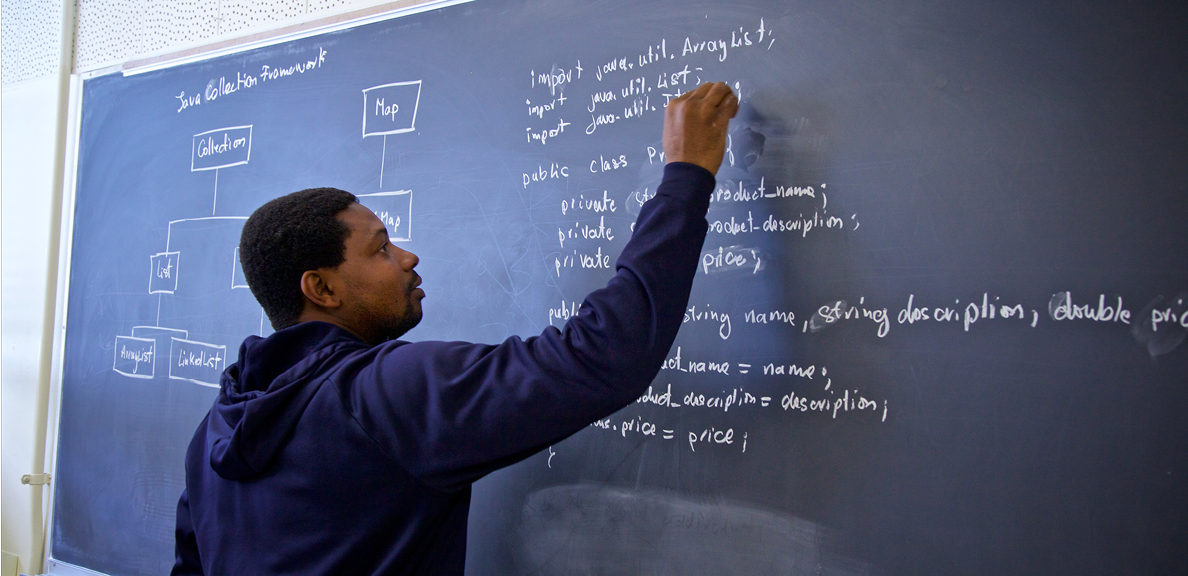 Java Collection Framework
Map
Collection
Map
List
ArrayList
LinkedList
import java.util.ArrayList;
import java.util.List;
import java.util.
public class
private product_name;
private product_description;
private price;
string name, string description, double
name = name;
description = description;
.price = price;
{